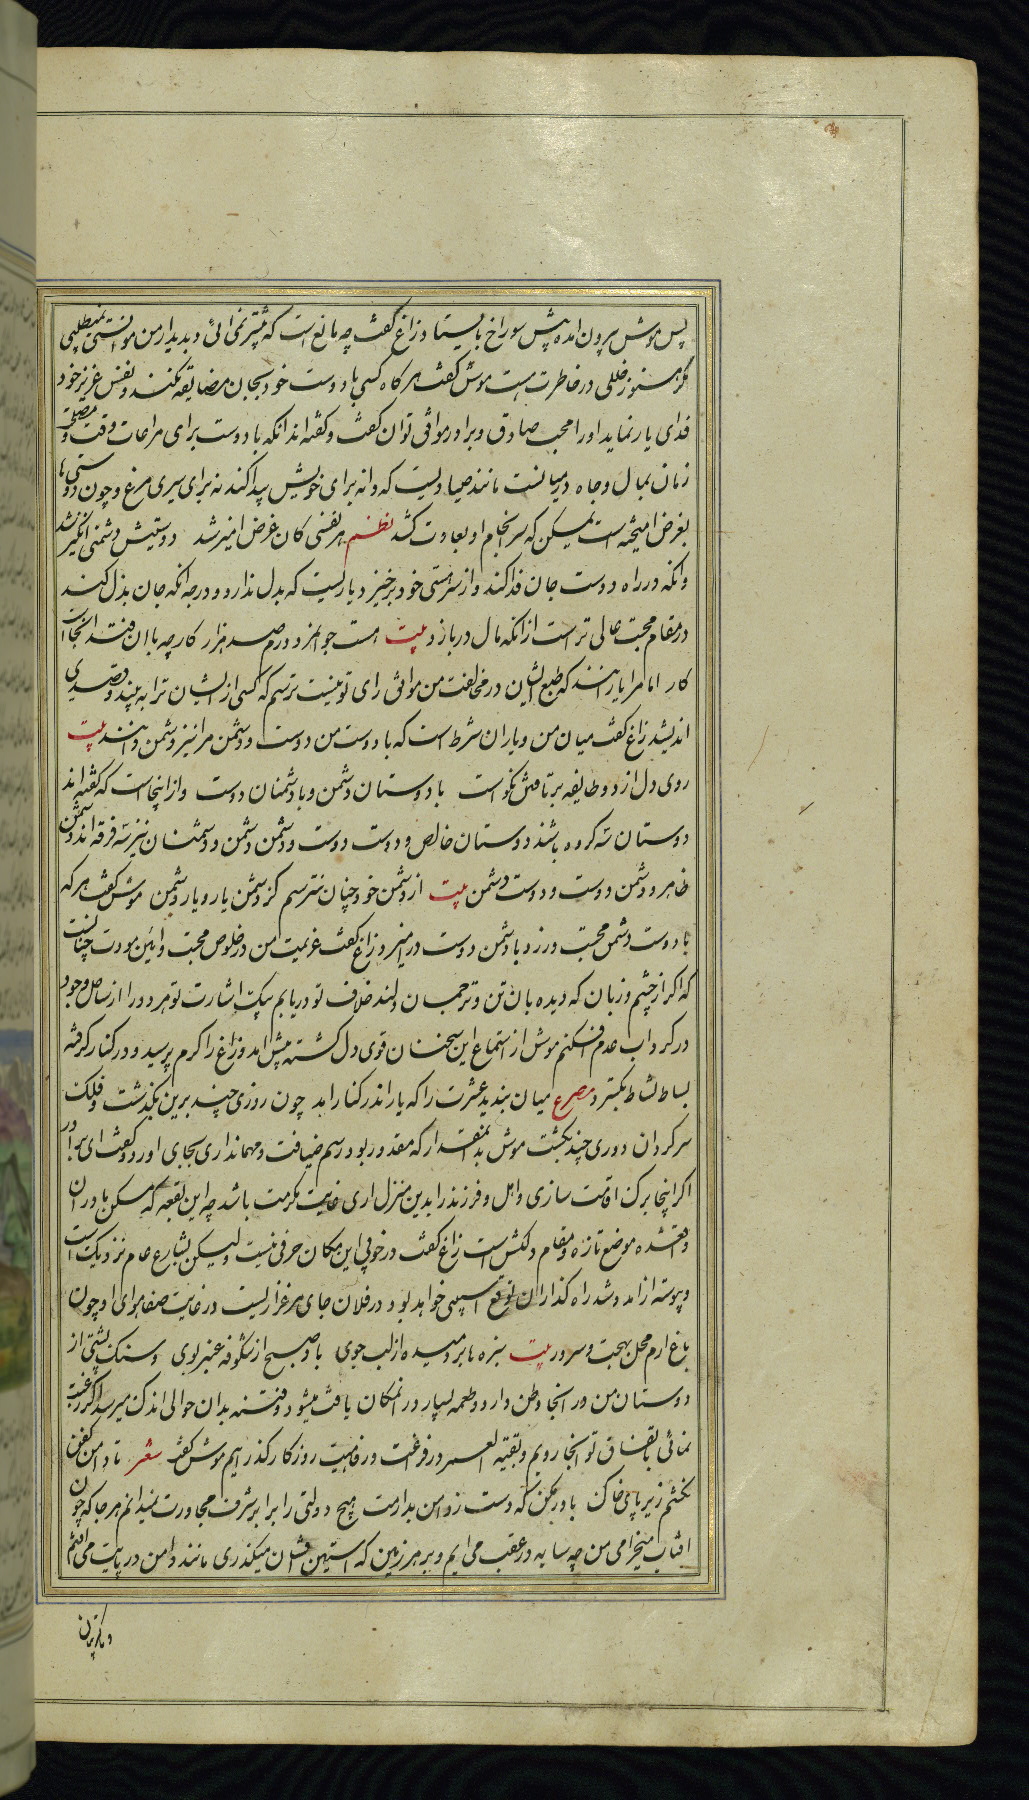 پس موش بیرون امده پیش سوراخ بایستاد زاغ گفت چه مانع است که پیشتر نمی ائی و بدیدار من موانست نمیطلبی
مگر هنوز خللی در خاطرت هست موش گفت هر کاه کسی با دوست خود بجان مضایقه نکند و نفس عزیز خود
فدای یار نماید او را محب صادق و برادر موافق توان گفت و گفته اند انکه با دوست برای مراعات وقت و مصلحت
زمان بمال و جاه در میانست مانند صیادیست که دانه برای خویش پراکند نه برای سیری مرغ و چون دوستی ها
بغرض امیخته است یمکن که سر انجام او بعداوت کشد نظم هر نفسی کان غرض امیز شد دوستیش دشمنی انگیز شد
وانکه در راه دوست جان فدا کند و از سر هستی خود برخیزد یاریست که بدل ندارد و درجه انکه جان بذل کند
در مقام محبت عالی تر است از انکه مال در بازد بیت هست جوانمرد درم صد هزار کار چه با جان فتد انجاست
کار اما مرا یارانند که طبع ایشان در مخالفت من موافق رای تو نیست ترسم که کسی از ایشان ترا به بیند و قصدی
اندیشد زاغ گفت میان من و یاران شرط است که با دوست من دوست و دشمن مرا نیز دشمن دانند بیت
روی دل از دو طایفه برتافتن نکو است با دوستان دشمن و با دشمنان دوست و از اینجاست که گفته اند
دوستان سه گروه باشند دوستان خالص و دوست دوست و دشمن دشمن و دشمنان نیز سه فرقه اند دشمن
ظاهر و دشمن دوست و دوست دشمن بیت از دشمن خود چنان نترسم کز دشمن یار و یار دشمن موش گفت هر که
با دوست دشمن محبت ورزد یا دشمن دوست در امیزد زاغ گفت عزیمت من در خلوص محبت و ائین مودت چنانست
که اگر از چشم و زبان که دیده بان تن و ترجمان دلند خلاف تو دریابم بیک اشارت تو هر دو را از ساحل وجود
در گرداب عدم افکنم موش از استماع این سخنان قوی دل گشته پیش امد و زاغ را گرم پرسید و در کنار گرفته
بساط نشاط بگسترد مصرع میان بندید عشرت را که یار اندر کنار امد چون روزی چند برین بگذشت و فلک
سرگردان دوری چند بگشت موش بدانمقدار که مقدور بود رسم ضیافت و مهمانداری بجای اورد و گفت ای برادر
اگر اینجا برگ اقامت سازی و اهل و فرزند را بدین منزل اری غایت مکرمت باشد چه این بقعه که مسکن ما دران
واقعشده موضع تازه و مقام دلکش است زاغ گفت در خوبی این مکان حرفی نیست ولیکن بشارع عام نزدیک است
و پیوسته از امد و شد راه گذاران توقع اسیبی خواهد بود در فلان جای مرغزاریست در غایت صفا هوای او چون
باغ ارم محل بهجت و سرور بیت سبزه ها بر دمیده از لب جوی باد صبح از شگوفه عنبر بوی و سنگ پشتی از
دوستان من در انجا وطن دارد و طعمه بسیار در انمکان یافت میشود و فتنه بدان حوالی اندک میرسد اگر رغبت
نمائی باتفاق تو انجا رویم و بقیه العمر در فراغت و رفاهیت روزگار گذرانیم موش گفت شعر تا دامن کفن
نکشم زیر پای خاک باور مکن که دست ز دامن بدارمت هیچ دولتی را برابر شرف مجاورت نمیدانم هر جا که چون
افتاب میخرامی من چه سایه در عقب می ایم و بر هر زمین که استین فشان میگذری مانند دامن در پایت می افتم